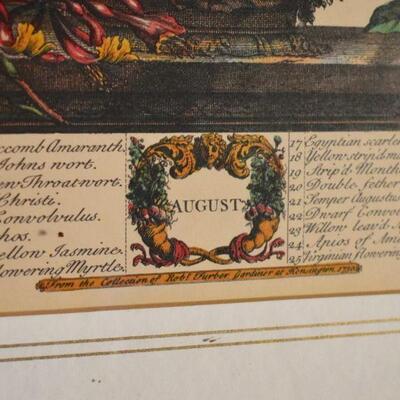 ccomb Amaranth.
Johns wort.
en Throatwort.
Christi.
Convolvulus.
hos.
ellow Jasmine.
lowering Myrtle.
AUGUST
17 Egyptian scarle
18 Yellow strip'd mar
19 Strip'd Month
20 Double fether
21 Semper Augustus
22 Dwarf Convo
23 Willow leav'd A
24 Apios of Ame
25 Virginian flowering
From the Collection of Robt. Furber Gardiner at Kensington 1730